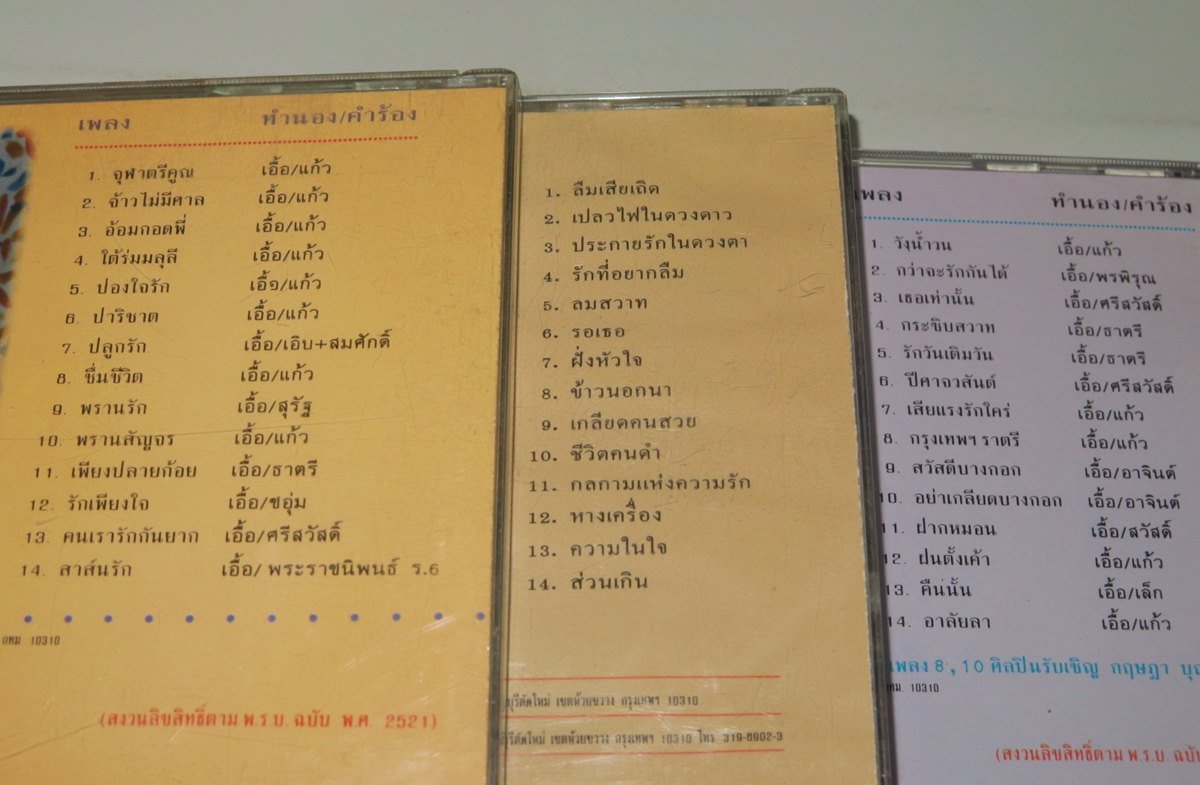 เพลง ทำนอง/คำร้อง
1. จุฬาตรีคูณ เอื้อ/แก้ว
2. จ้าวไม่มีศาล เอื้อ/แก้ว
3. อ้อมกอดพี่ เอื้อ/แก้ว
4. ใต้ร่มมลุลี เอื้อ/แก้ว
5. ปองใจรัก เอื้อ/แก้ว
6. ปาริชาต เอื้อ/แก้ว
7. ปลูกรัก เอื้อ/เอิบ+สมศักดิ์
8. ชื่นชีวิต เอื้อ/แก้ว
9. พรานรัก เอื้อ/สุรัฐ
10. พรานสัญจร เอื้อ/แก้ว
11. เพียงปลายก้อย เอื้อ/ธาตรี
12. รักเพียงใจ เอื้อ/ชอุ่ม
13. คนเรารักกันยาก เอื้อ/ศรีสวัสดิ์
14. สาส์นรัก เอื้อ/ พระราชนิพนธ์ ร.6
กทม. 10310
(สงวนลิขสิทธิ์ตาม พ.ร.บ. ฉบับ พ.ศ. 2521)
1. ลืมเสียเถิด
2. เปลวไฟในดวงดาว
3. ประกายรักในดวงตา
4. รักที่อยากลืม
5. ลมสวาท
6. รอเธอ
7. ฝั่งหัวใจ
8. ข้าวนอกนา
9. เกลียดคนสวย
10. ชีวิตคนดำ
11. กลกามแห่งความรัก
12. หางเครื่อง
13. ความในใจ
14. ส่วนเกิน
บุรีตัดใหม่ เขตห้วยขวาง กรุงเทพฯ 10310
รีตัดใหม่ เขตห้วยขวาง กรุงเทพฯ 10310 โทร. 319-6902-3
เพลง ทำนอง/คำร้อง
1. วังน้ำวน เอื้อ/แก้ว
2. กว่าจะรักกันได้ เอื้อ/พรพิรุณ
3. เธอเท่านั้น เอื้อ/ศรีสวัสดิ์
4. กระซิบสวาท เอื้อ/ธาตรี
5. รักวันเติมวัน เอื้อ/ธาตรี
6. ปีศาจวสันต์ เอื้อ/ศรีสวัสดิ์
7. เสียแรงรักใคร่ เอื้อ/แก้ว
8. กรุงเทพฯ ราตรี เอื้อ/แก้ว
9. สวัสดีบางกอก เอื้อ/อาจินต์
10. อย่าเกลียดบางกอก เอื้อ/อาจินต์
11. ฝากหมอน เอื้อ/สวัสดิ์
12. ฝนตั้งเค้า เอื้อ/แก้ว
13. คืนนั้น เอื้อ/เล็ก
14. อาลัยลา เอื้อ/แก้ว
เพลง 8, 10 ศิลปินรับเชิญ กฤษฎา
กทม. 10310
(สงวนลิขสิทธิ์ตาม พ.ร.บ. ฉบับ